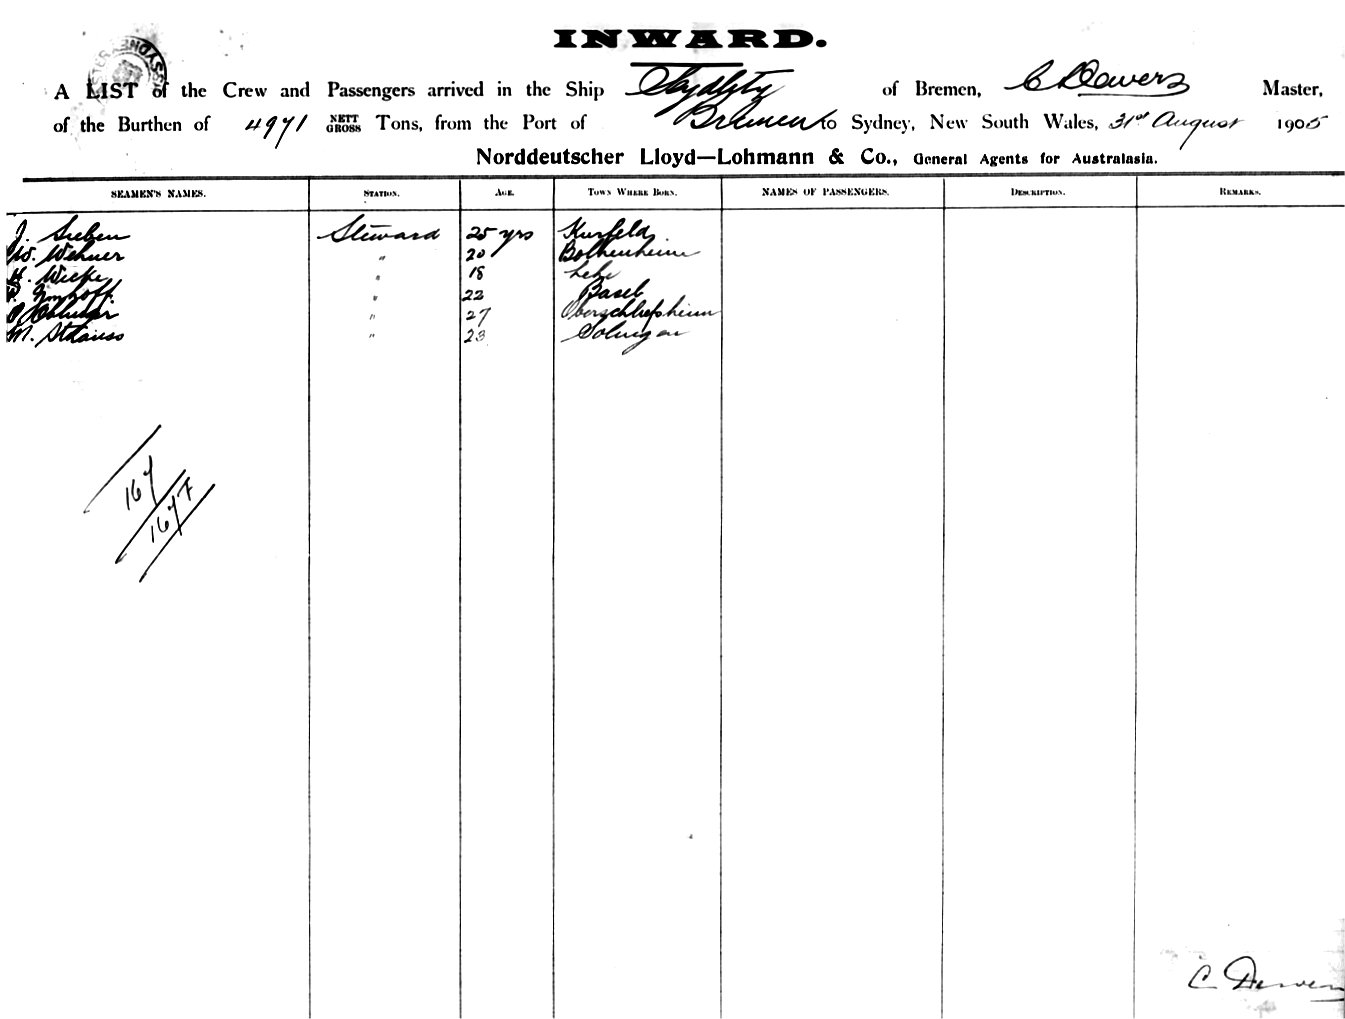 INWARD.
A LIST of the Crew and Passengers arrived in the Ship of Bremen, C Dewers Master,
of the Burthen of 4971 NETT GROSS Tons, from the Port of Bremen to Sydney, New South Wales, 31st August 1905
Norddeutscher Lloyd—Lohmann & Co., General Agents for Australasia.
SEAMEN'S NAMES. STATION. AGE. TOWN WHERE BORN. NAMES OF PASSENGERS. DESCRIPTION. REMARKS.
J. Sieben Steward 25 yrs Kurfeld
W. Wehner " 20 Bolkenheim
H. Wicke " 18 Lehe
Imhoff " 22 Basel
" 27
M. Strauss " 23 Solingen
167
C Dewers